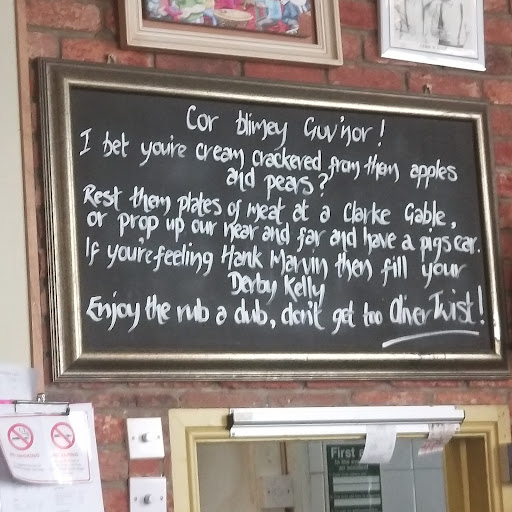 Cor blimey Guv'nor!
I bet you're cream crackered from them apples
and pears?
Rest them plates of meat at a Clarke Gable,
or prop up our near and far and have a pigs ear.
If you're feeling Hank Marvin then fill your
Derby Kelly
Enjoy the rub a dub, don't get too Oliver Twist!
First